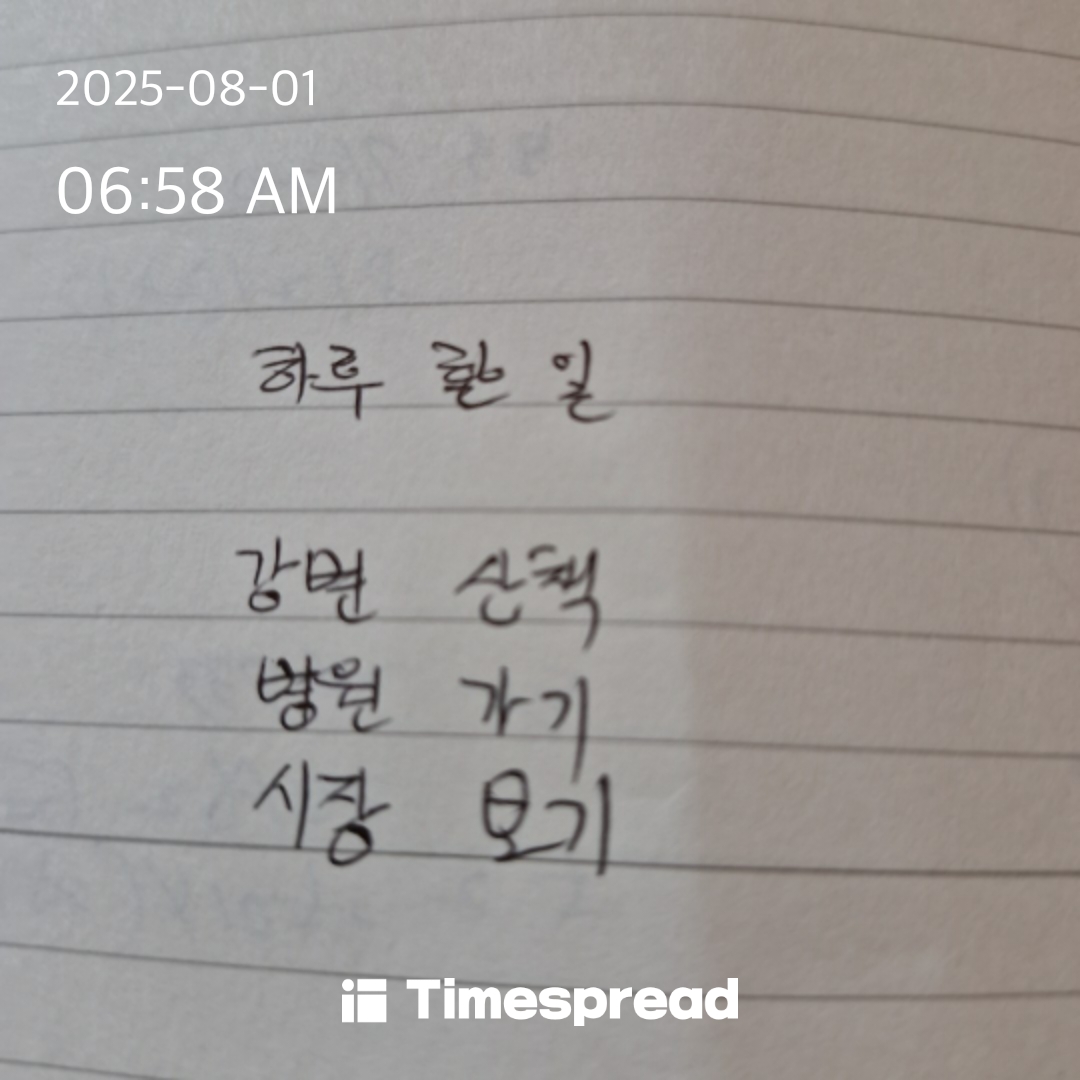 2025-08-01
06:58 AM
하루 할 일
강변 산책
병원 가기
시장 보기
Timespread